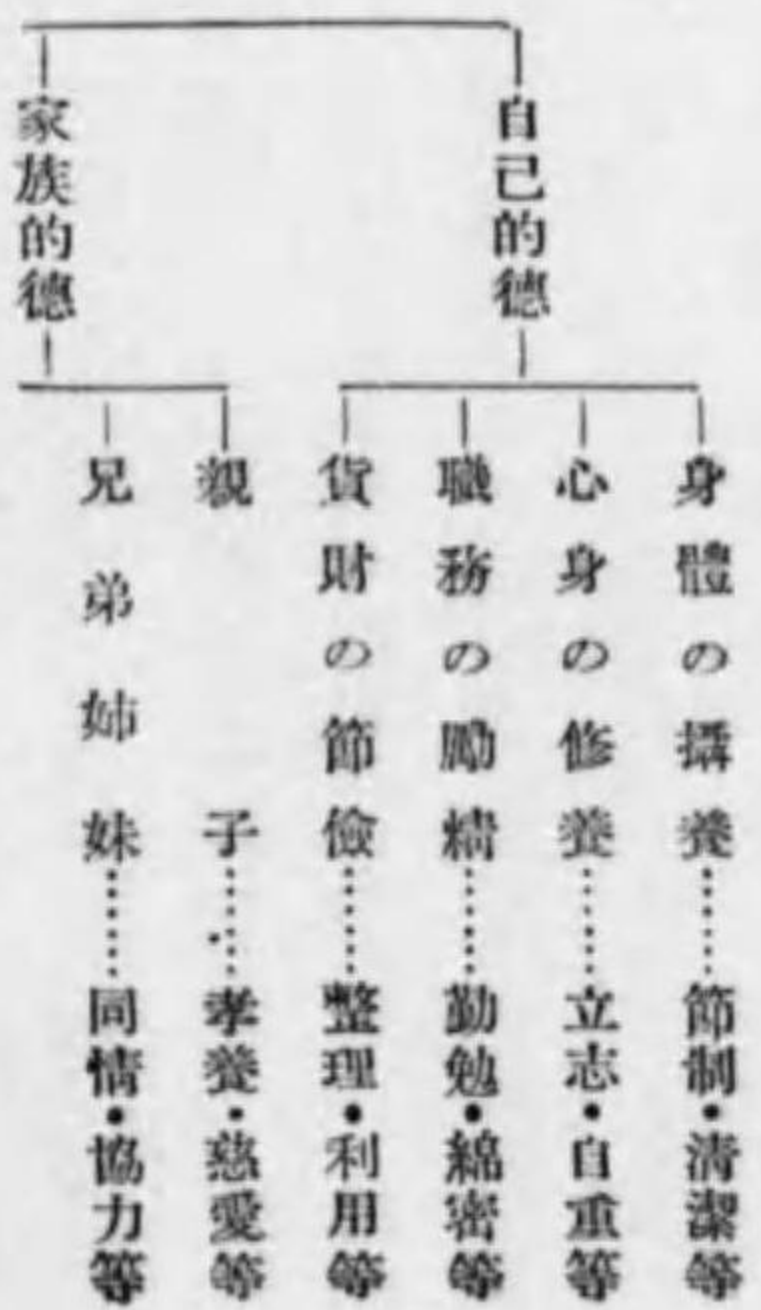 自己的德
身體の攝養……節制・淸潔等
心身の修養……立志・自重等
職務の勵精……勤勉・綿密等
貨財の節儉……整理・利用等
家族的德
親子……孝養・慈愛等
兄弟姉妹……同情・協力等